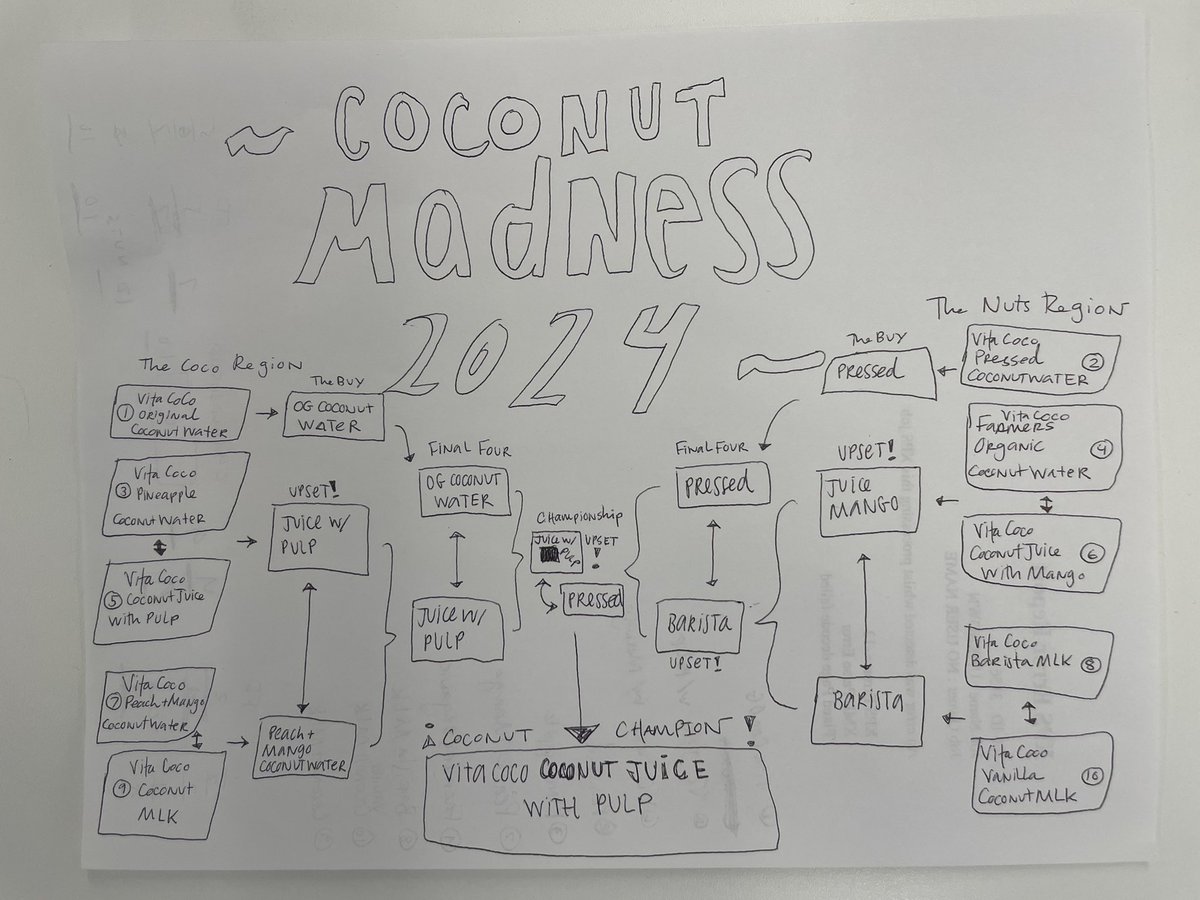 ~ COCONUT
MadNeSS
2024 ~
The Coco Region
① Vita CoCo
ORIGINAL
COCONUT WATER
③ Vita Coco
PINEAPPLE
COCONUT WATER
⑤ Vita Coco
COCONUT JUICE
WITH PULP
⑦ Vita Coco
Peach+Mango
COCONUT WATER
⑨ Vita Coco
COCONUT
MLK
The BUY
OG COCONUT
WATER
UPSET!
JUICE W/
PULP
Peach+
MANGO
COCONUT WATER
FINAL FOUR
OG COCONUT
WATER
JUICE W/
PULP
CHAMPIONSHIP
JUICE W/
PULP
UPSET
!
PRESSED
FINAL FOUR
PRESSED
BARISTA
UPSET!
The BUY
PRESSED
UPSET!
JUICE
MANGO
BARISTA
The Nuts Region
Vita Coco
Pressed
COCONUTWATER ②
Vita Coco
FARMERS
Organic
Coconut Water ④
Vita Coco
Coconut Juice
With Mango ⑥
Vita Coco
Barista MLK ⑧
Vita Coco
Vanilla
Coconut MLK ⑩
¡ COCONUT CHAMPION !
Vita COCO COCONUT JUICE
WITH PULP